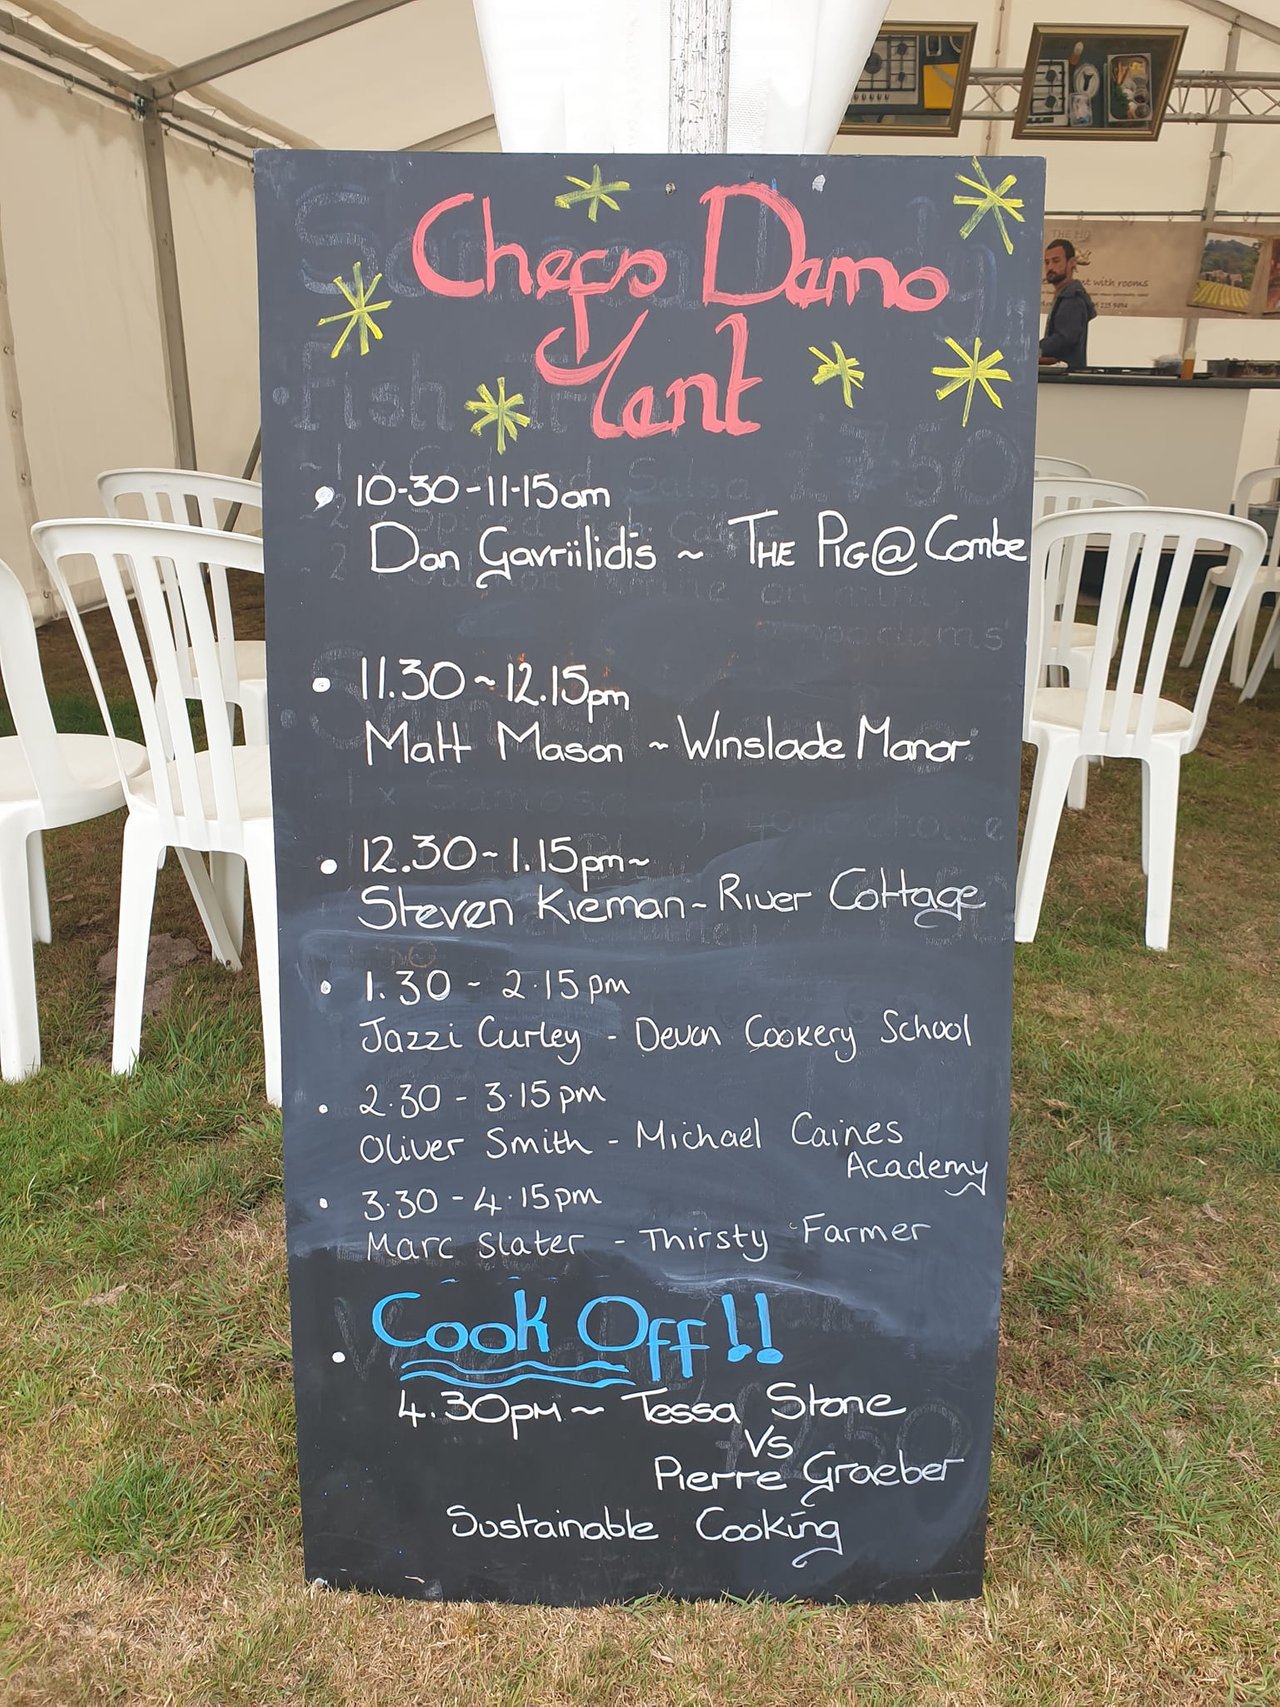 Chefs Demo
Tent
10-30-11-15am
Dan Gavriilidis ~ THE PIG@Combe
11.30~12.15pm
Matt Mason ~ Winslade Manor
12.30~1.15pm~
Steven Kieman~River Cottage
1.30 - 2.15pm
Jazzi Curley - Devon Cookery School
2.30 - 3.15pm
Oliver Smith - Michael Caines
Academy
3.30 - 4.15pm
Marc Slater - Thirsty Farmer
Cook Off!!
4.30pm ~ Tessa Stone
Vs
Pierre Graeber
Sustainable Cooking
THE PIG
with rooms